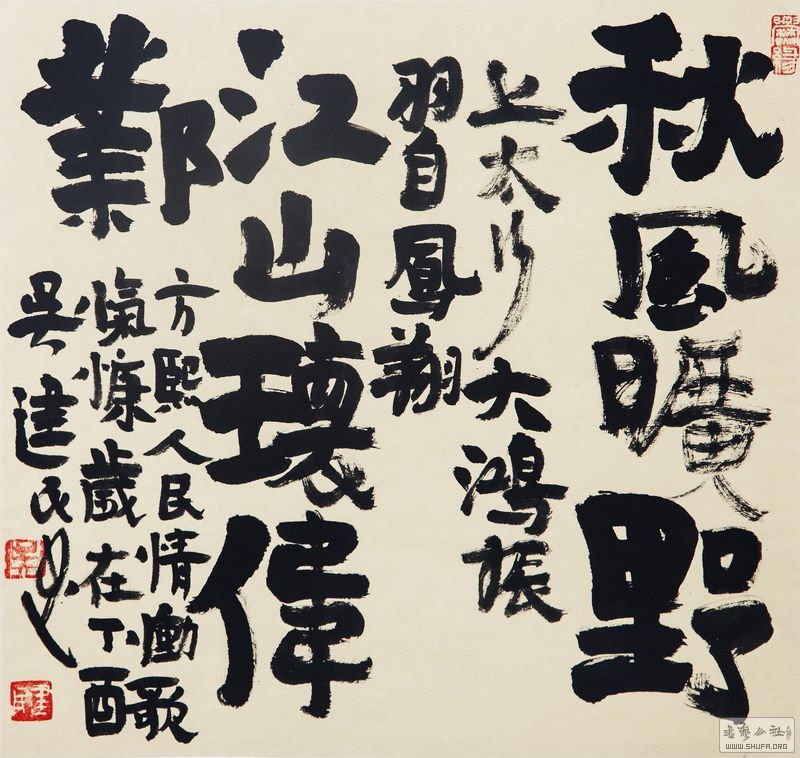 秋風曠野
上太行大鴻振
羽自鳳翔
江山瓌偉
鄴
方熙人民情慟歌
愾慷歲在丁酉
吳建民
書藝公社
WWW.SHUFA.ORG